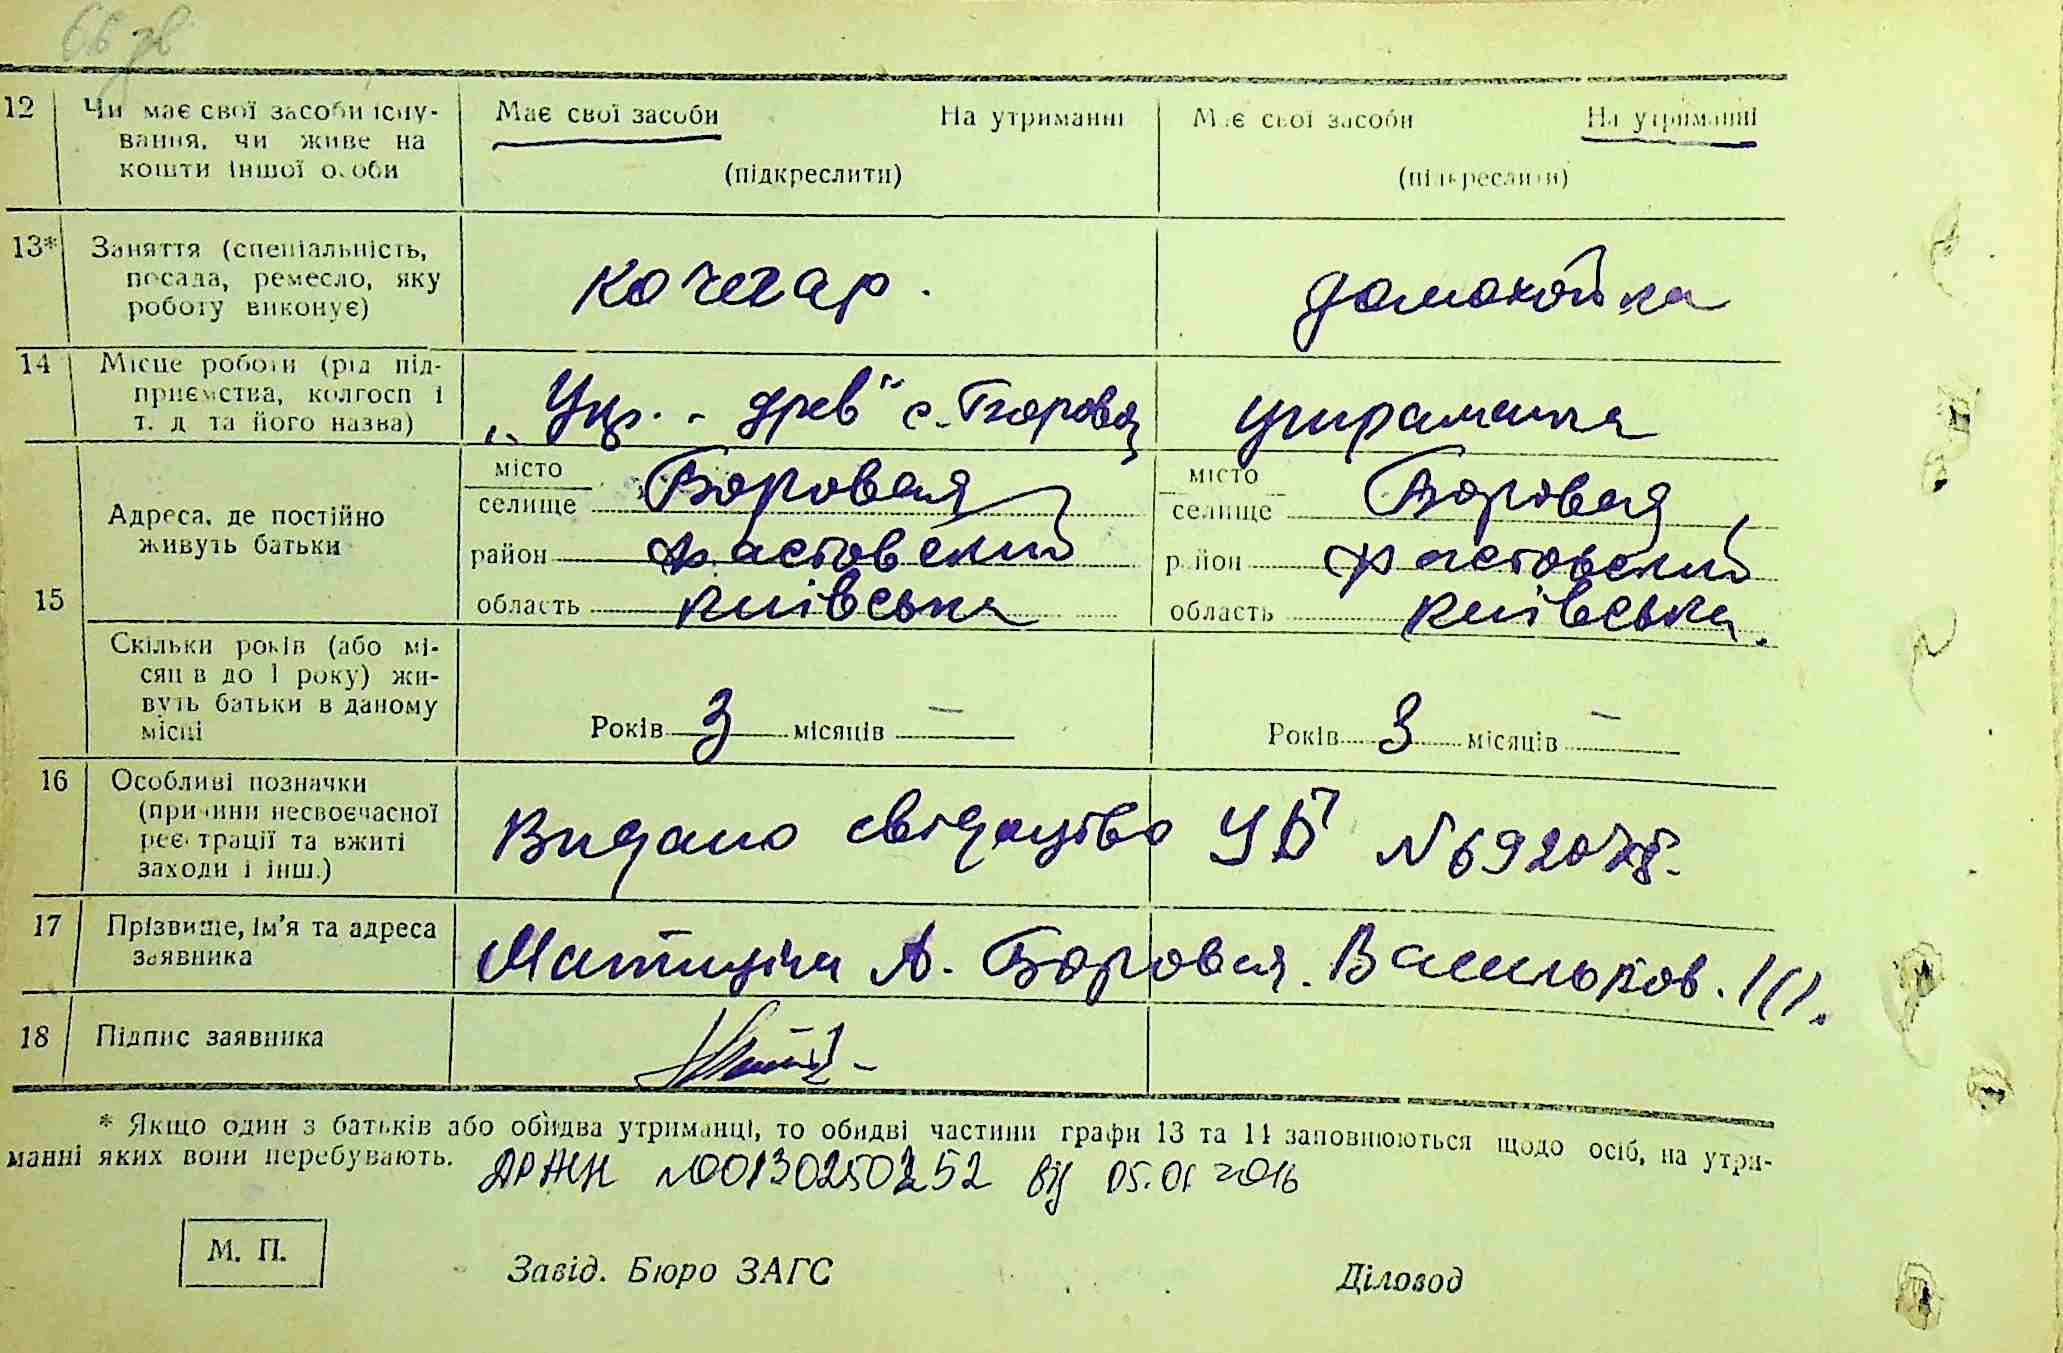 66 зв
12 Чи має свої засоби існу-
вання, чи живе на
кошти іншої особи
Має свої засоби На утриманні
(підкреслити)
Має свої засоби На утриманні
(підкреслити)
13* Заняття (спеціальність,
посада, ремесло, яку
роботу виконує)
кочегар.
домохойка
14 Місце роботи (рід під-
приємства, колгосп і
т. д. та його назва)
„Укр. - древ" с. Боровая
утримання
15
Адреса, де постійно
живуть батьки
місто
селище Боровая
район Фастовский
область київська
місто
селище Боровая,
район Фастовский
область київська.
Скільки років (або мі-
сяців до 1 року) жи-
вуть батьки в даному
місці
Років 3 місяців —
Років 3 місяців —
16 Особливі позначки
(причини несвоєчасної
реєстрації та вжиті
заходи і інш.)
Видано свідоцтво УБ №692078.
17 Прізвище, ім'я та адреса
заявника
А. Боровая. Васильков.
18 Підпис заявника
* Якщо один з батьків або обидва утриманці, то обидві частини графи 13 та 14 заповнюються щодо осіб, на утри-
манні яких вони перебувають.
ДРЖН №00130250252 від 05.01 2016
М. П.
Завід. Бюро ЗАГС
Діловод